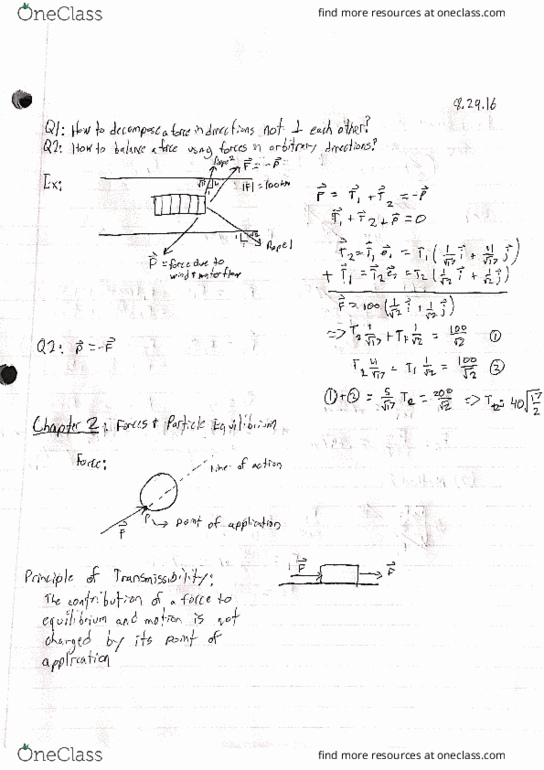 OneClass
find more resources at oneclass.com
8.29.16
Q1: How to decompose a force in directions not ⊥ each other?
Q2: How to balance a force using forces in arbitrary directions?
Ex:
Rope 2
F = -P
|F| = 100 kN
Rope 1
P = force due to
wind + water flow
F = T₁ + T₂ = -P
T₁ + T₂ + P = 0
F = 100 (1/√2 i + 1/√2 j)
①
②
① + ② = 5/√17 T₂ = 200/√2 => T₂ = 40 √17/2
Q2: P = -F
Chapter 2: Forces + Particle Equilibrium
Force:
line of action
P
point of application
F
Principle of Transmissibility:
F
F
The contribution of a force to
equilibrium and motion is not
changed by its point of
application
OneClass
find more resources at oneclass.com